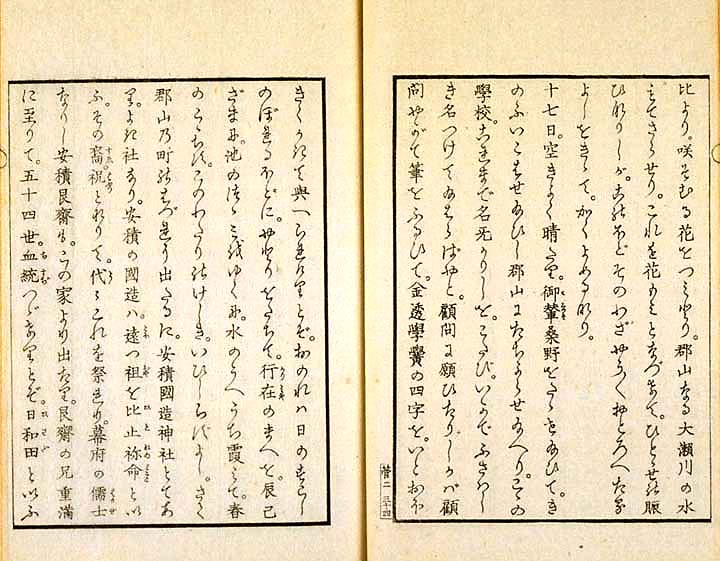 比より。咲そむる花をつミとり。郡山なる大瀬川の水
にてさらせり。これを花かつミとなづけて。ひとゝせハ賑
ひなりしが。そのわざやうやくおとろへたる
よしをきゝて。かくよめるなり。
十七日。空きよく晴たり。御輦桑野をたゝせたまひて。き
のふいこはせたまひし郡山にたちよらせたまへり。こゝの
學校。これまで名无かりしを。こたび。いかでふさわし
き名つけてたまはらばやと。顧問に願ひたりしかバ顧
問やがて筆をふるひて。金透學黌の四字を。いとおほ
菅二 三十四
きくかきて與へられけりとぞ。おのれハ日のすこし
のぼれるほどに。やどりをたちて。行在のまへを。辰巳
ざまに。池のほとりをゆくに。水のうへうち霞ミて。春
のこゝちす。このわたりのけしき。いひしらずよし。さて
郡山乃町のはづれより出たるに。安積國造神社とてあ
り。よき社なり。安積の國造ハ。遠つ祖を比止祢命とい
ふ。その裔祝となりて。代々これを祭れり。幕府の儒士
なりし安積艮齋も。この家より出たり。艮齋の兄重満
に至りて。五十四世血統つゞきたりとぞ。日和田といふ